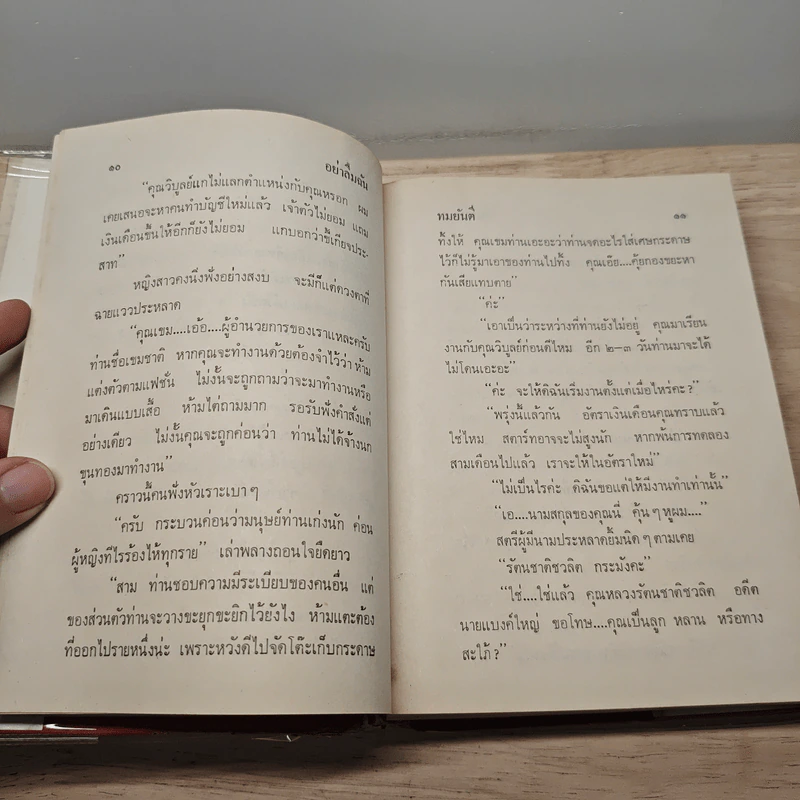 ๑๐ อย่าลืมฉัน
“คุณวิบูลย์แกไม่แลกตำแหน่งกับคุณหรอก ผม
เคยเสนอจะหาคนทำบัญชีใหม่แล้ว เจ้าตัวไม่ยอม แถม
เงินเดือนขึ้นให้อีกก็ยังไม่ยอม แกบอกว่าขี้เกียจประ-
สาท”
หญิงสาวคงนึ่งฟังอย่างสงบ จะมีก็แต่ดวงตาที่
ฉายแววประหลาด
“คุณเขม....เอ้อ....ผู้อำนวยการของเราแหละครับ
ท่านชื่อเขมชาติ หากคุณจะทำงานด้วยต้องจำไว้ว่า ห้าม
แต่งตัวตามแฟชั่น ไม่งั้นจะถูกถามว่าจะมาทำงานหรือ
มาเดินแบบเสื้อ ห้ามไต่ถามมาก รอรับฟังคำสั่งแต่
อย่างเดียว ไม่งั้นคุณจะถูกค่อนว่า ท่านไม่ได้จ้างนก
ขุนทองมาทำงาน”
คราวนี้คนฟังหัวเราะเบา ๆ
“ครับ กระบวนค่อนว่ามนุษย์ท่านเก่งนัก ค่อน
ผู้หญิงทีไรร้องไห้ทุกราย” เล่าพลางถอนใจยืดยาว
“สาม ท่านชอบความมีระเบียบของคนอื่น แต่
ของส่วนตัวท่านจะวางขะยุกขะยิกไว้ยังไง ห้ามแตะต้อง
ที่ออกไปรายหนึ่งน่ะ เพราะหวังดีไปจัดโต๊ะเก็บกระดาษ
ทมยันตี ๑๑
ทิ้งให้ คุณเขมท่านเอะอะว่าท่านจดอะไรใส่เศษกระดาษ
ไว้ก็ไม่รู้มาเอาของท่านไปทิ้ง คุณเอ๊ย....คุ้ยกองขยะหา
กันเสียแทบตาย”
“ค่ะ”
“เอาเป็นว่าระหว่างที่ท่านยังไม่อยู่ คุณมาเรียน
งานกับคุณวิบูลย์ก่อนดีไหม อีก ๒–๓ วันท่านมาจะได้
ไม่โดนเอะอะ”
“ค่ะ จะให้ดิฉันเริ่มงานตั้งแต่เมื่อไหร่คะ?”
“พรุ่งนี้แล้วกัน อัตราเงินเดือนคุณทราบแล้ว
ใช่ไหม สตาร์ทอาจจะไม่สูงนัก หากพ้นการทดลอง
สามเดือนไปแล้ว เราจะให้ในอัตราใหม่”
“ไม่เป็นไรค่ะ ดิฉันขอแต่ให้มีงานทำเท่านั้น”
“เอ....นามสกุลของคุณนี่ คุ้น ๆ หูผม....”
สตรีผู้มีนามประหลาดยิ้มนิด ๆ ตามเคย
“รัตนชาติชวลิต กระมังคะ”
“ใช่....ใช่แล้ว คุณหลวงรัตนชาติชวลิต อดีต
นายแบงค์ใหญ่ ขอโทษ....คุณเป็นลูก หลาน หรือทาง
สะใภ้?”